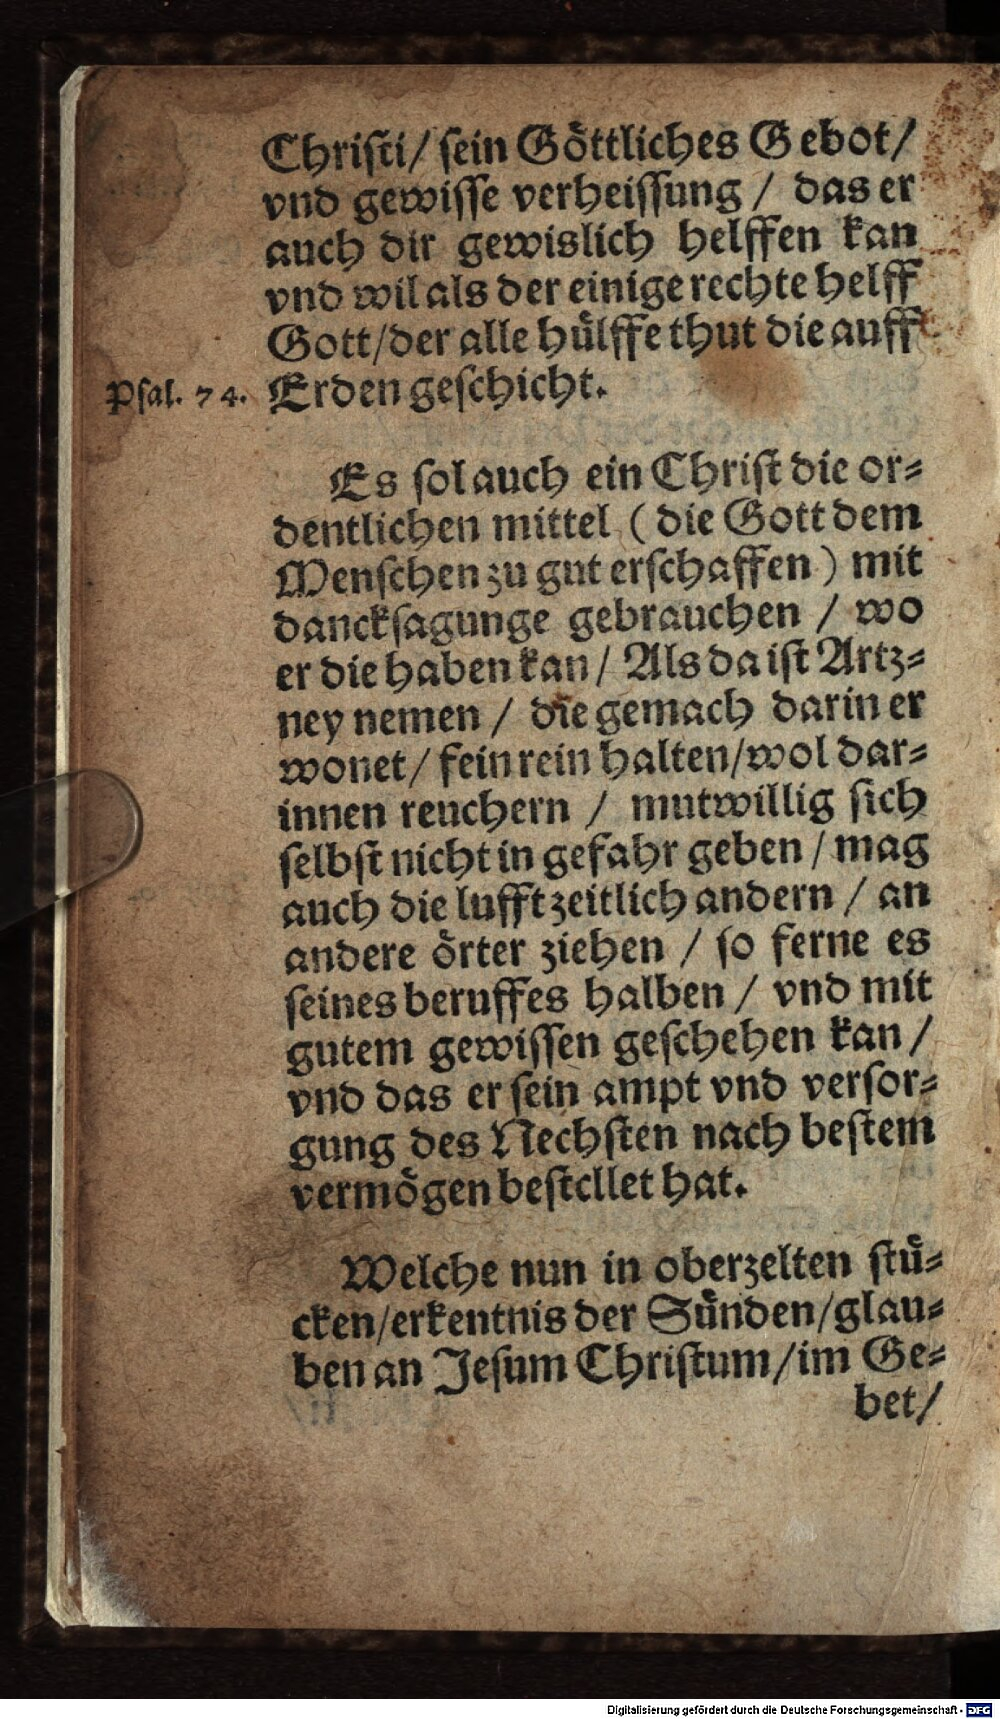 Christi/ sein Göttliches Gebot/
vnd gewisse verheissung / das er
auch dir gewislich helffen kan
vnd wil als der einige rechte helff
Gott/der alle hülffe thut die auff
Psal. 74. Erden geschicht.
Es sol auch ein Christ die or=
dentlichen mittel ( die Gott dem
Menschen zu gut erschaffen ) mit
dancksagunge gebrauchen / wo
er die haben kan/ Als da ist Artz=
ney nemen / die gemach darin er
wonet/ fein rein halten/wol dar=
innen reuchern / mutwillig sich
selbst nicht in gefahr geben / mag
auch die lufft zeitlich andern / an
andere örter ziehen / so ferne es
seines beruffes halben / vnd mit
gutem gewissen geschehen kan /
vnd das er sein ampt vnd versor=
gung des Nechsten nach bestem
vermögen bestellet hat.
Welche nun in oberzelten stü=
cken/erkentnis der Sünden/glau=
ben an Jesum Christum/im Ge=
bet/
Digitalisierung gefördert durch die Deutsche Forschungsgemeinschaft - DFG